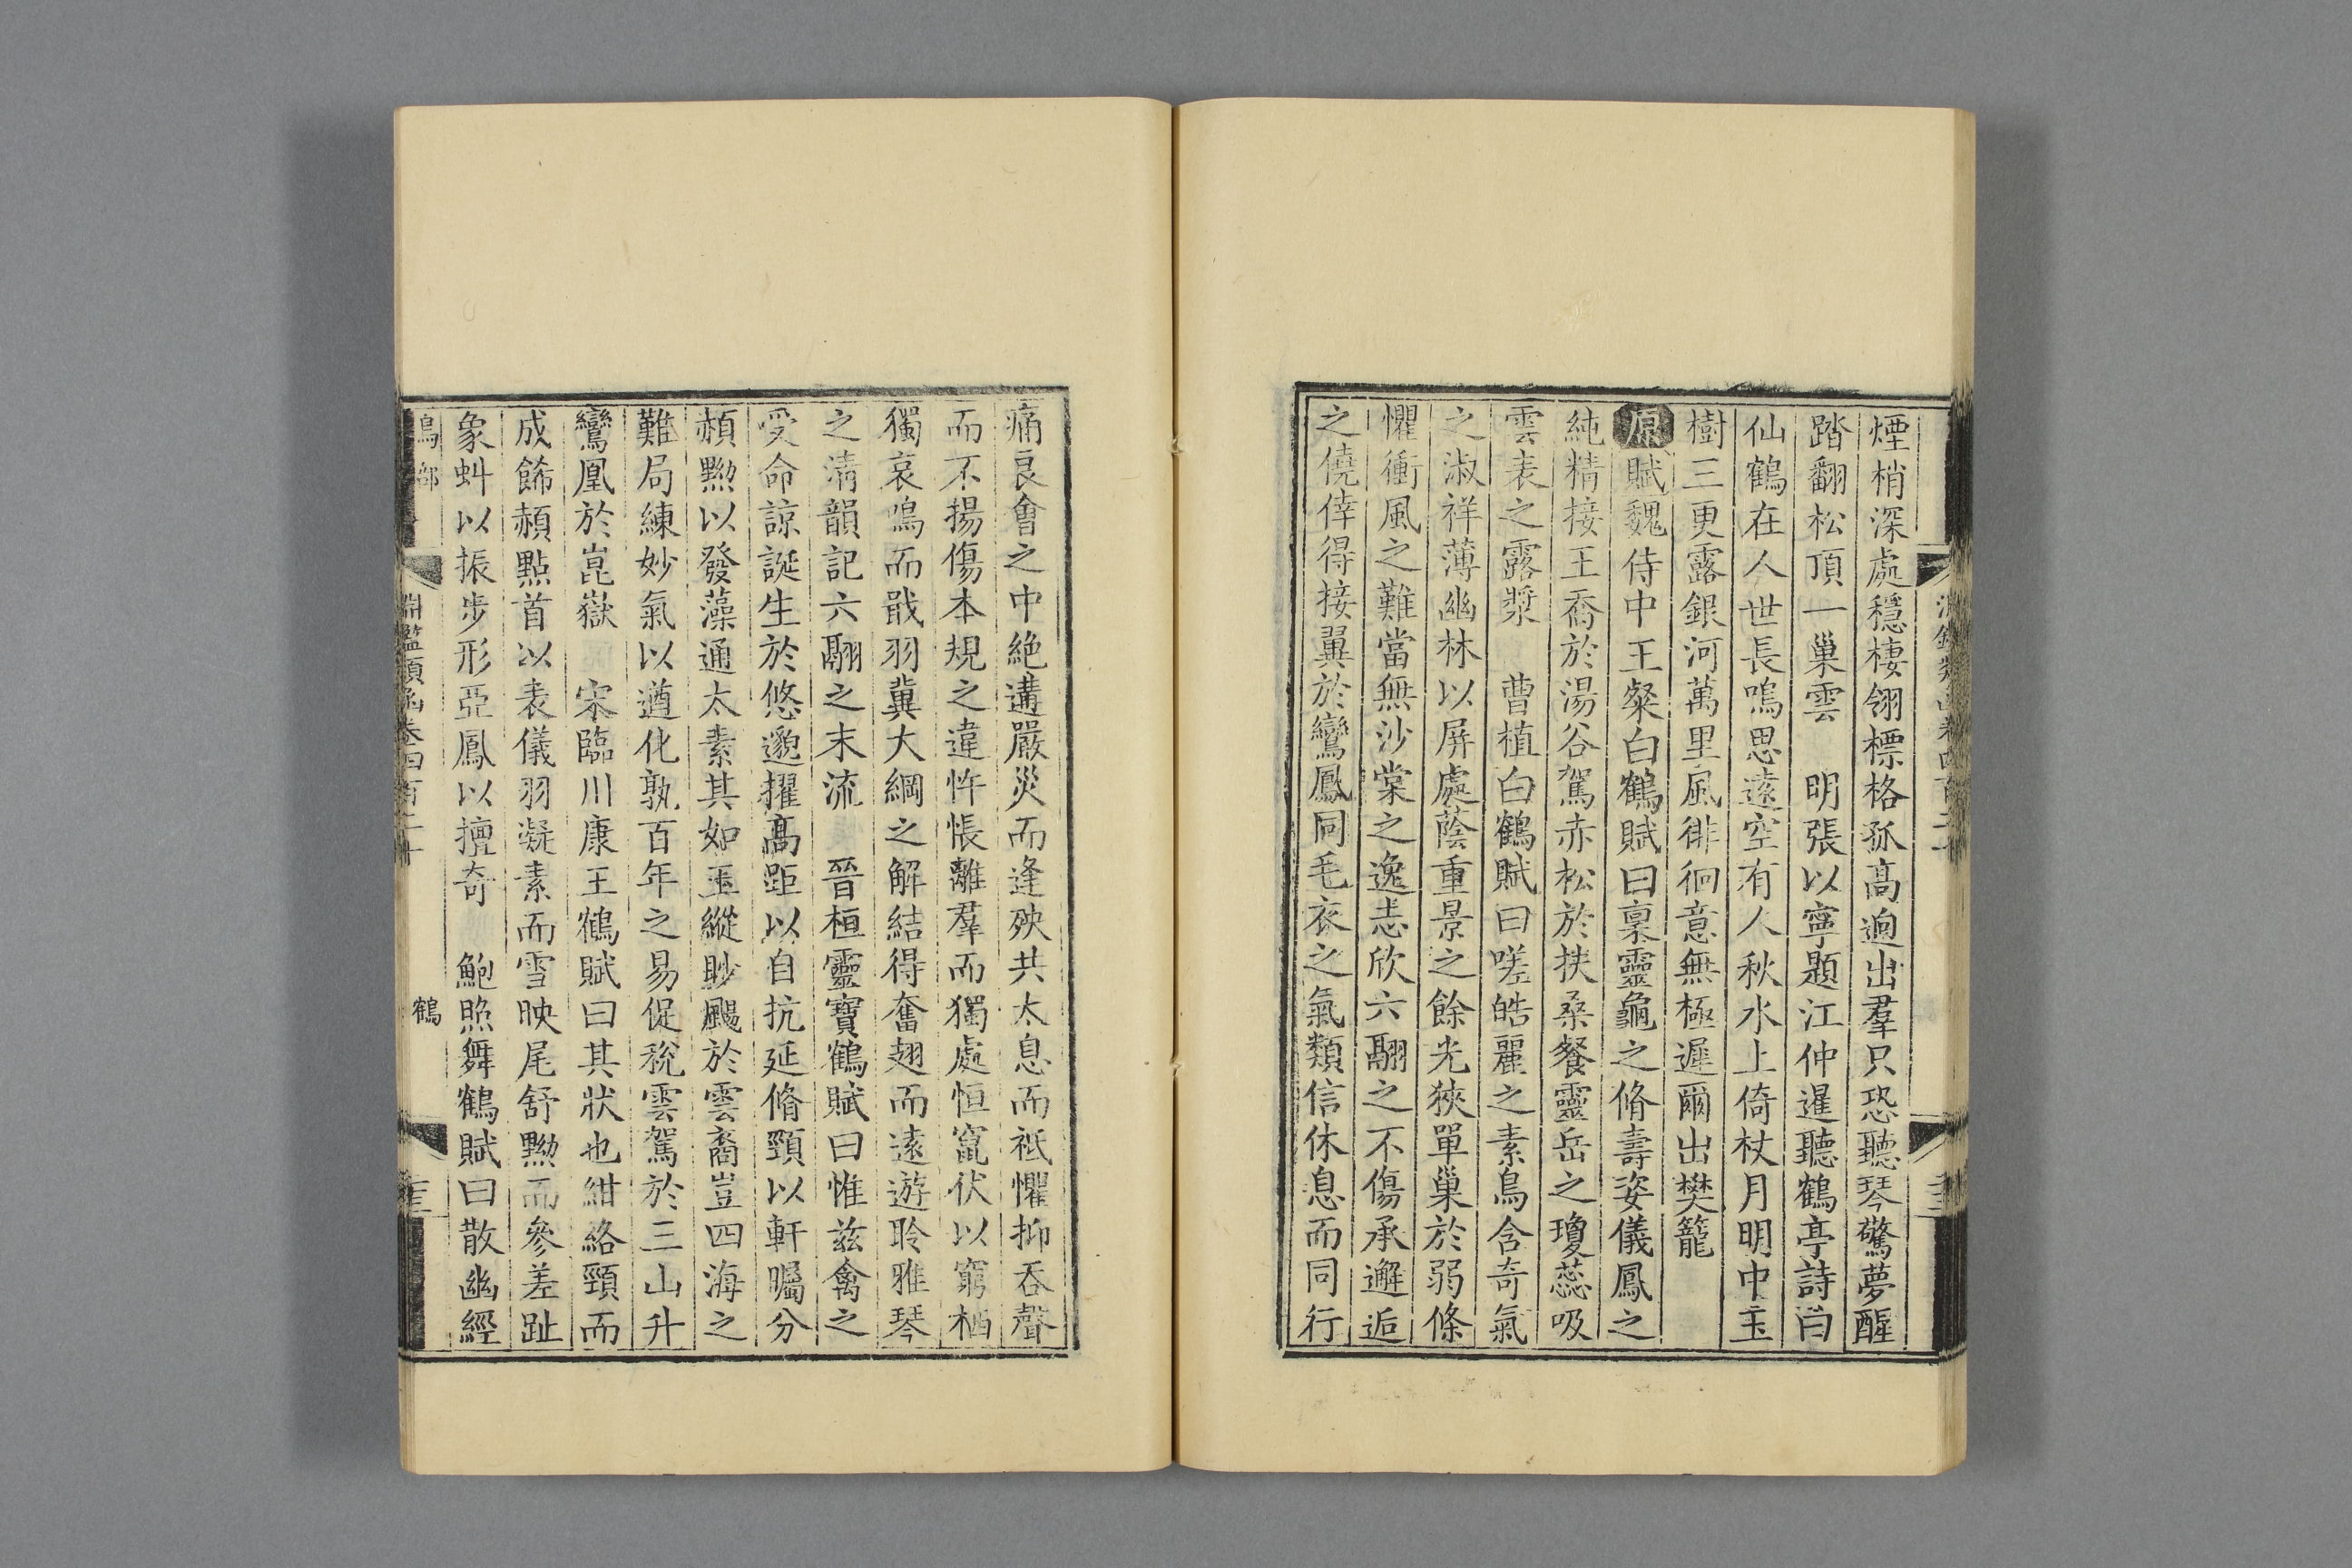 煙梢深處穩棲翎標格孤高逈出羣只恐聽琴驚夢醒
踏翻松頂一巢雲　明張以寧題江仲暹聽鶴亭詩曰
仙鶴在人世長鳴思遠空有人秋水上倚杖月明中玉
樹三更露銀河萬里風徘徊意無極遲爾出樊籠
原賦魏侍中王粲白鶴賦曰稟靈龜之脩壽姿儀鳳之
純精接王喬於湯谷駕赤松於扶桑餐靈岳之瓊蕊吸
雲表之露漿　曹植白鶴賦曰嗟皓麗之素鳥含奇氣
之淑祥薄幽林以屏處蔭重景之餘光狹單巢於弱條
懼衝風之難當無沙棠之逸志欣六翮之不傷承邂逅
之僥倖得接翼於鸞鳳同毛衣之氣類信休息而同行
痛良會之中絶遘嚴災而逢殃共太息而祗懼抑吞聲
而不揚傷本規之違忤悵離羣而獨處恒竄伏以窮栖
獨哀鳴而戢羽冀大綱之解結得奮翅而遠遊聆雅琴
之清韻記六翮之末流　晉桓靈寶鶴賦曰惟兹禽之
受命諒誕生於悠邈擢高距以自抗延脩頸以軒矚分
赬黝以發藻通太素其如玉縱眇颺於雲裔豈四海之
難局練妙氣以遒化孰百年之易促稅雲駕於三山升
鸞凰於崑嶽　宋臨川康王鶴賦曰其狀也紺絡頸而
成飾赬點首以表儀羽凝素而雪映尾舒黝而參差趾
象虯以振步形亞鳳以擅奇　鮑照舞鶴賦曰散幽經
鳥部　淵鑑類函卷四百二十　鶴